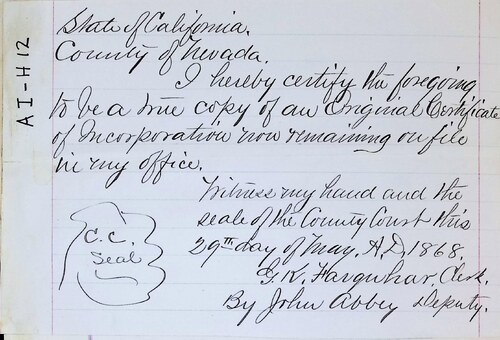 AI-H12
State of California.
County of Nevada.
I hereby certify the foregoing
to be a true copy of an Original Certificate
of Incorporation now remaining on file
in my office.
Witness my hand and the
seale of the County Court this
29th day of May, A.D. 1868,
G.K. Farquhar, Clerk.
By John Abbey Deputy.
C.C.
Seal